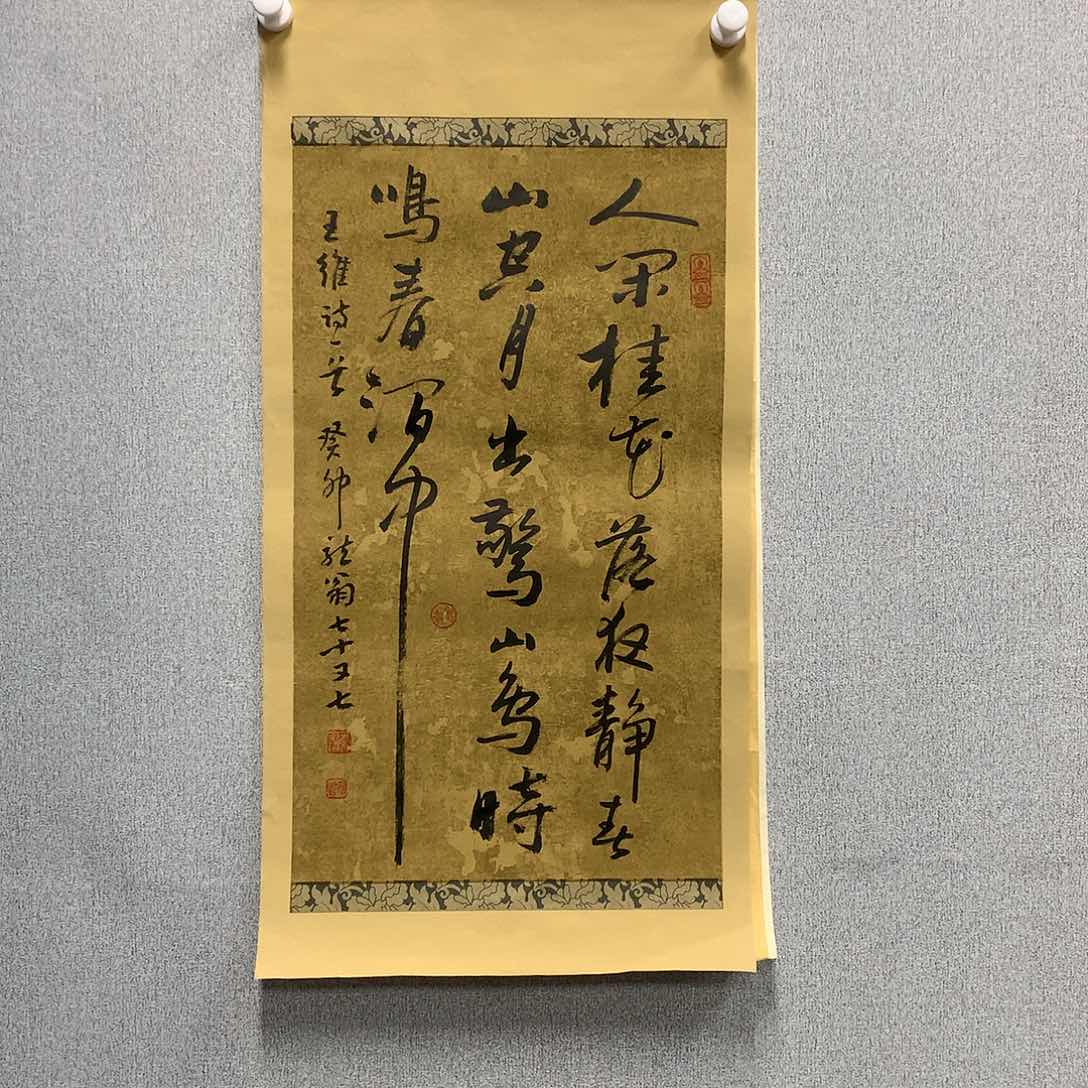 人閑桂花落夜靜春
山空月出驚山鳥時
鳴春澗中
王維詩一首 癸卯 龍翁七十又七